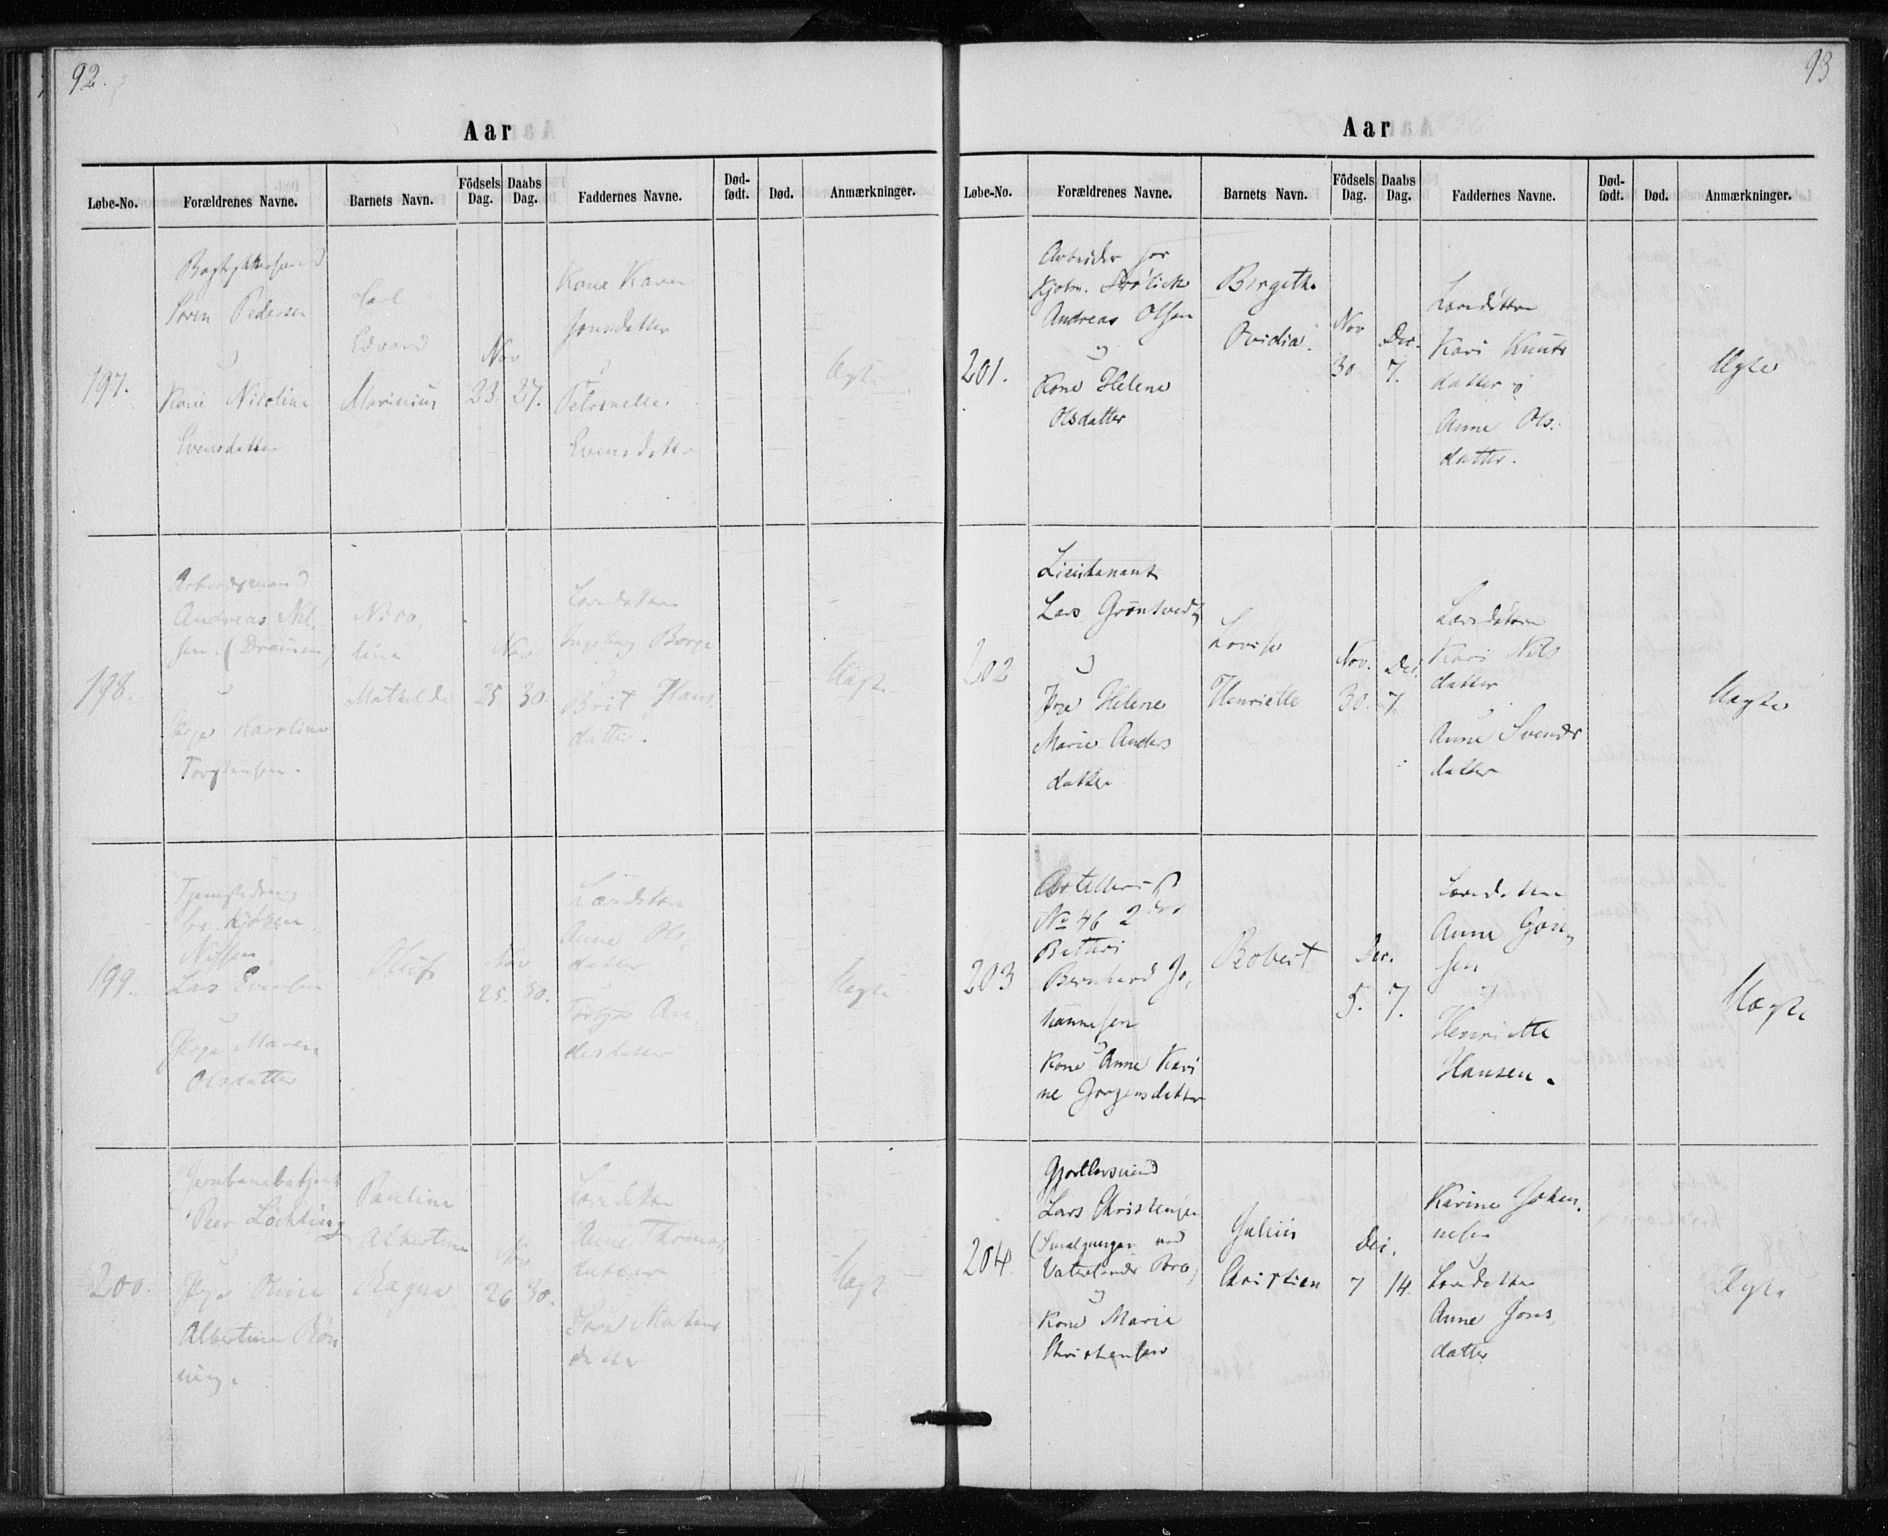 92.
Aar
Løbe-No. Forældrenes Navne. Barnets Navn. Födsels Dag. Daabs Dag. Faddernes Navne. Død-födt. Død. Anmærkninger.
197.
Søren Pedersen
Kone Nicoline
Evensdatter
Carl
Edvard
Marinius
Nov
23. 27.
Kone Karen
Jonsdatter
Petronelle
Evensdatter
Uægte
198.
Arbeidsmand
Andreas Nil,
sen. (Dramen)
u
Pige Karoline
Torgersen.
Nico,
line
Mathilde
Nov
25. 30.
Ingeborg Borge
Brit Hans,
datter.
Uægte
199.
Nissen,
Lars Evensen
Pige Maren
Olsdatter
Oluf
Nov
25. 30.
Anne Ols,
datter
An,
dersdatter
Uægte
200.
Jernbanebetjent
Peer Löchting
Pige Oline
Albertine Røn
ning.
Pauline
Albertine
Ragna
Nov
26 30.
Anne Thomas,
datter
datter
Uægte
93
Aar
Løbe-No. Forældrenes Navne. Barnets Navn. Födsels Dag. Daabs Dag. Faddernes Navne. Død-födt. Død. Anmærkninger.
201.
Arbeider hos
Andreas Olsen
u
Kone Helene
Olsdatter
Birgithe
Ovidia.
Nov
30
Dec.
7.
Kari Knuts
datter u
Anne Ols,
datter.
Ægte
202
Lieutenant
Lars Grøntvedt,
u
Pige Helene
Marie Anders
datter
Lovise
Henriette
Nov.
30.
Dec.
7.
Kari Nils
datter
Anne Svends
datter
Uægte
203
No 46 2den
Batteri
Bernhard Jo,
hannesen
u
Kone Anne Kari
ne Jørgensdatter
Robert
Dec.
5. 7.
Anne Gun,
sen
u
Henriette
Hansen.
Uægte
204
Gjørtlersvend
Lars Christensen
(Smalgangen ved
Vaterlands Bro)
u
Kone Marie
Christensen
Julius
Christian
Dec.
7 14.
Karine Johan,
nesen
u
Anne Jons,
datter
Ægte